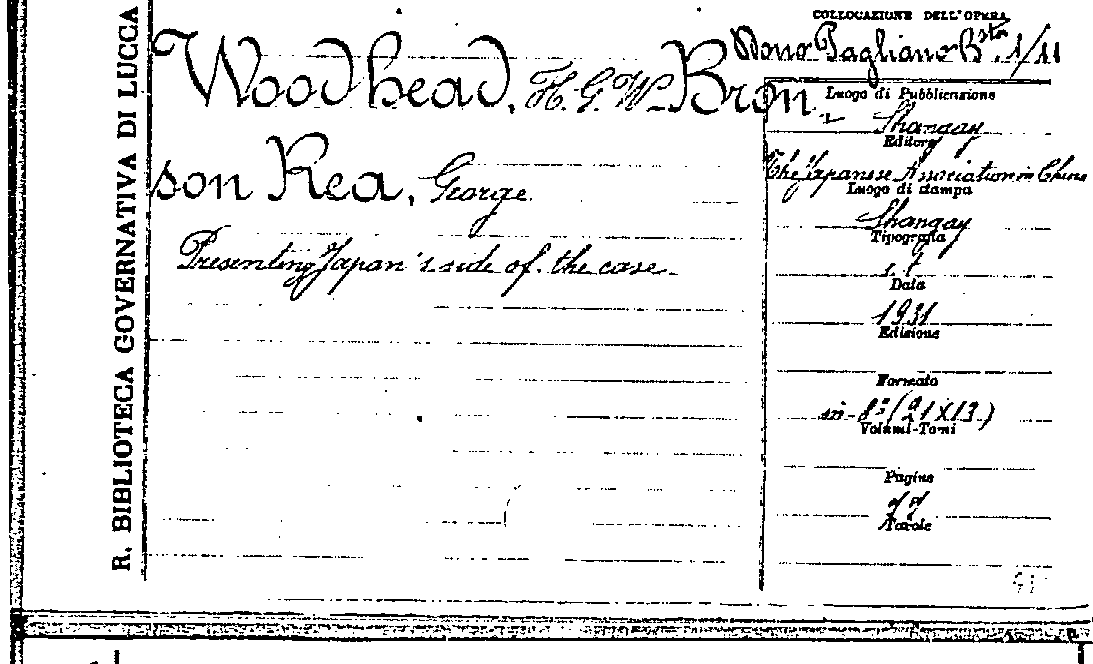 R. BIBLIOTECA GOVERNATIVA DI LUCCA
Woodhead, H. G. W. Bron-
son Rea, George
Presenting Japan's side of the case.
COLLOCAZIONE DELL'OPERA
Dono Pagliano Bsta 1/11
Luogo di Pubblicazione
Shangay
Editore
The Japanese Association in China
Luogo di stampa
Shangay
Tipografia
s. t.
Data
1931
Edizione
Formato
in-8° (21X13)
Volumi-Tomi
Pagine
Tavole